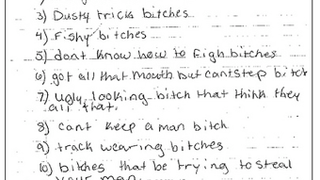 3) Dusty tricks bitches
4) Fishy bitches
5) dont know how to figh bitches
6) got all that mouth but cant step bitch
7) Ugly looking bitch that think they
all that.
8) cant keep a man bitch
9) track wearing bitches
10) bitches that be trying to steal
your man